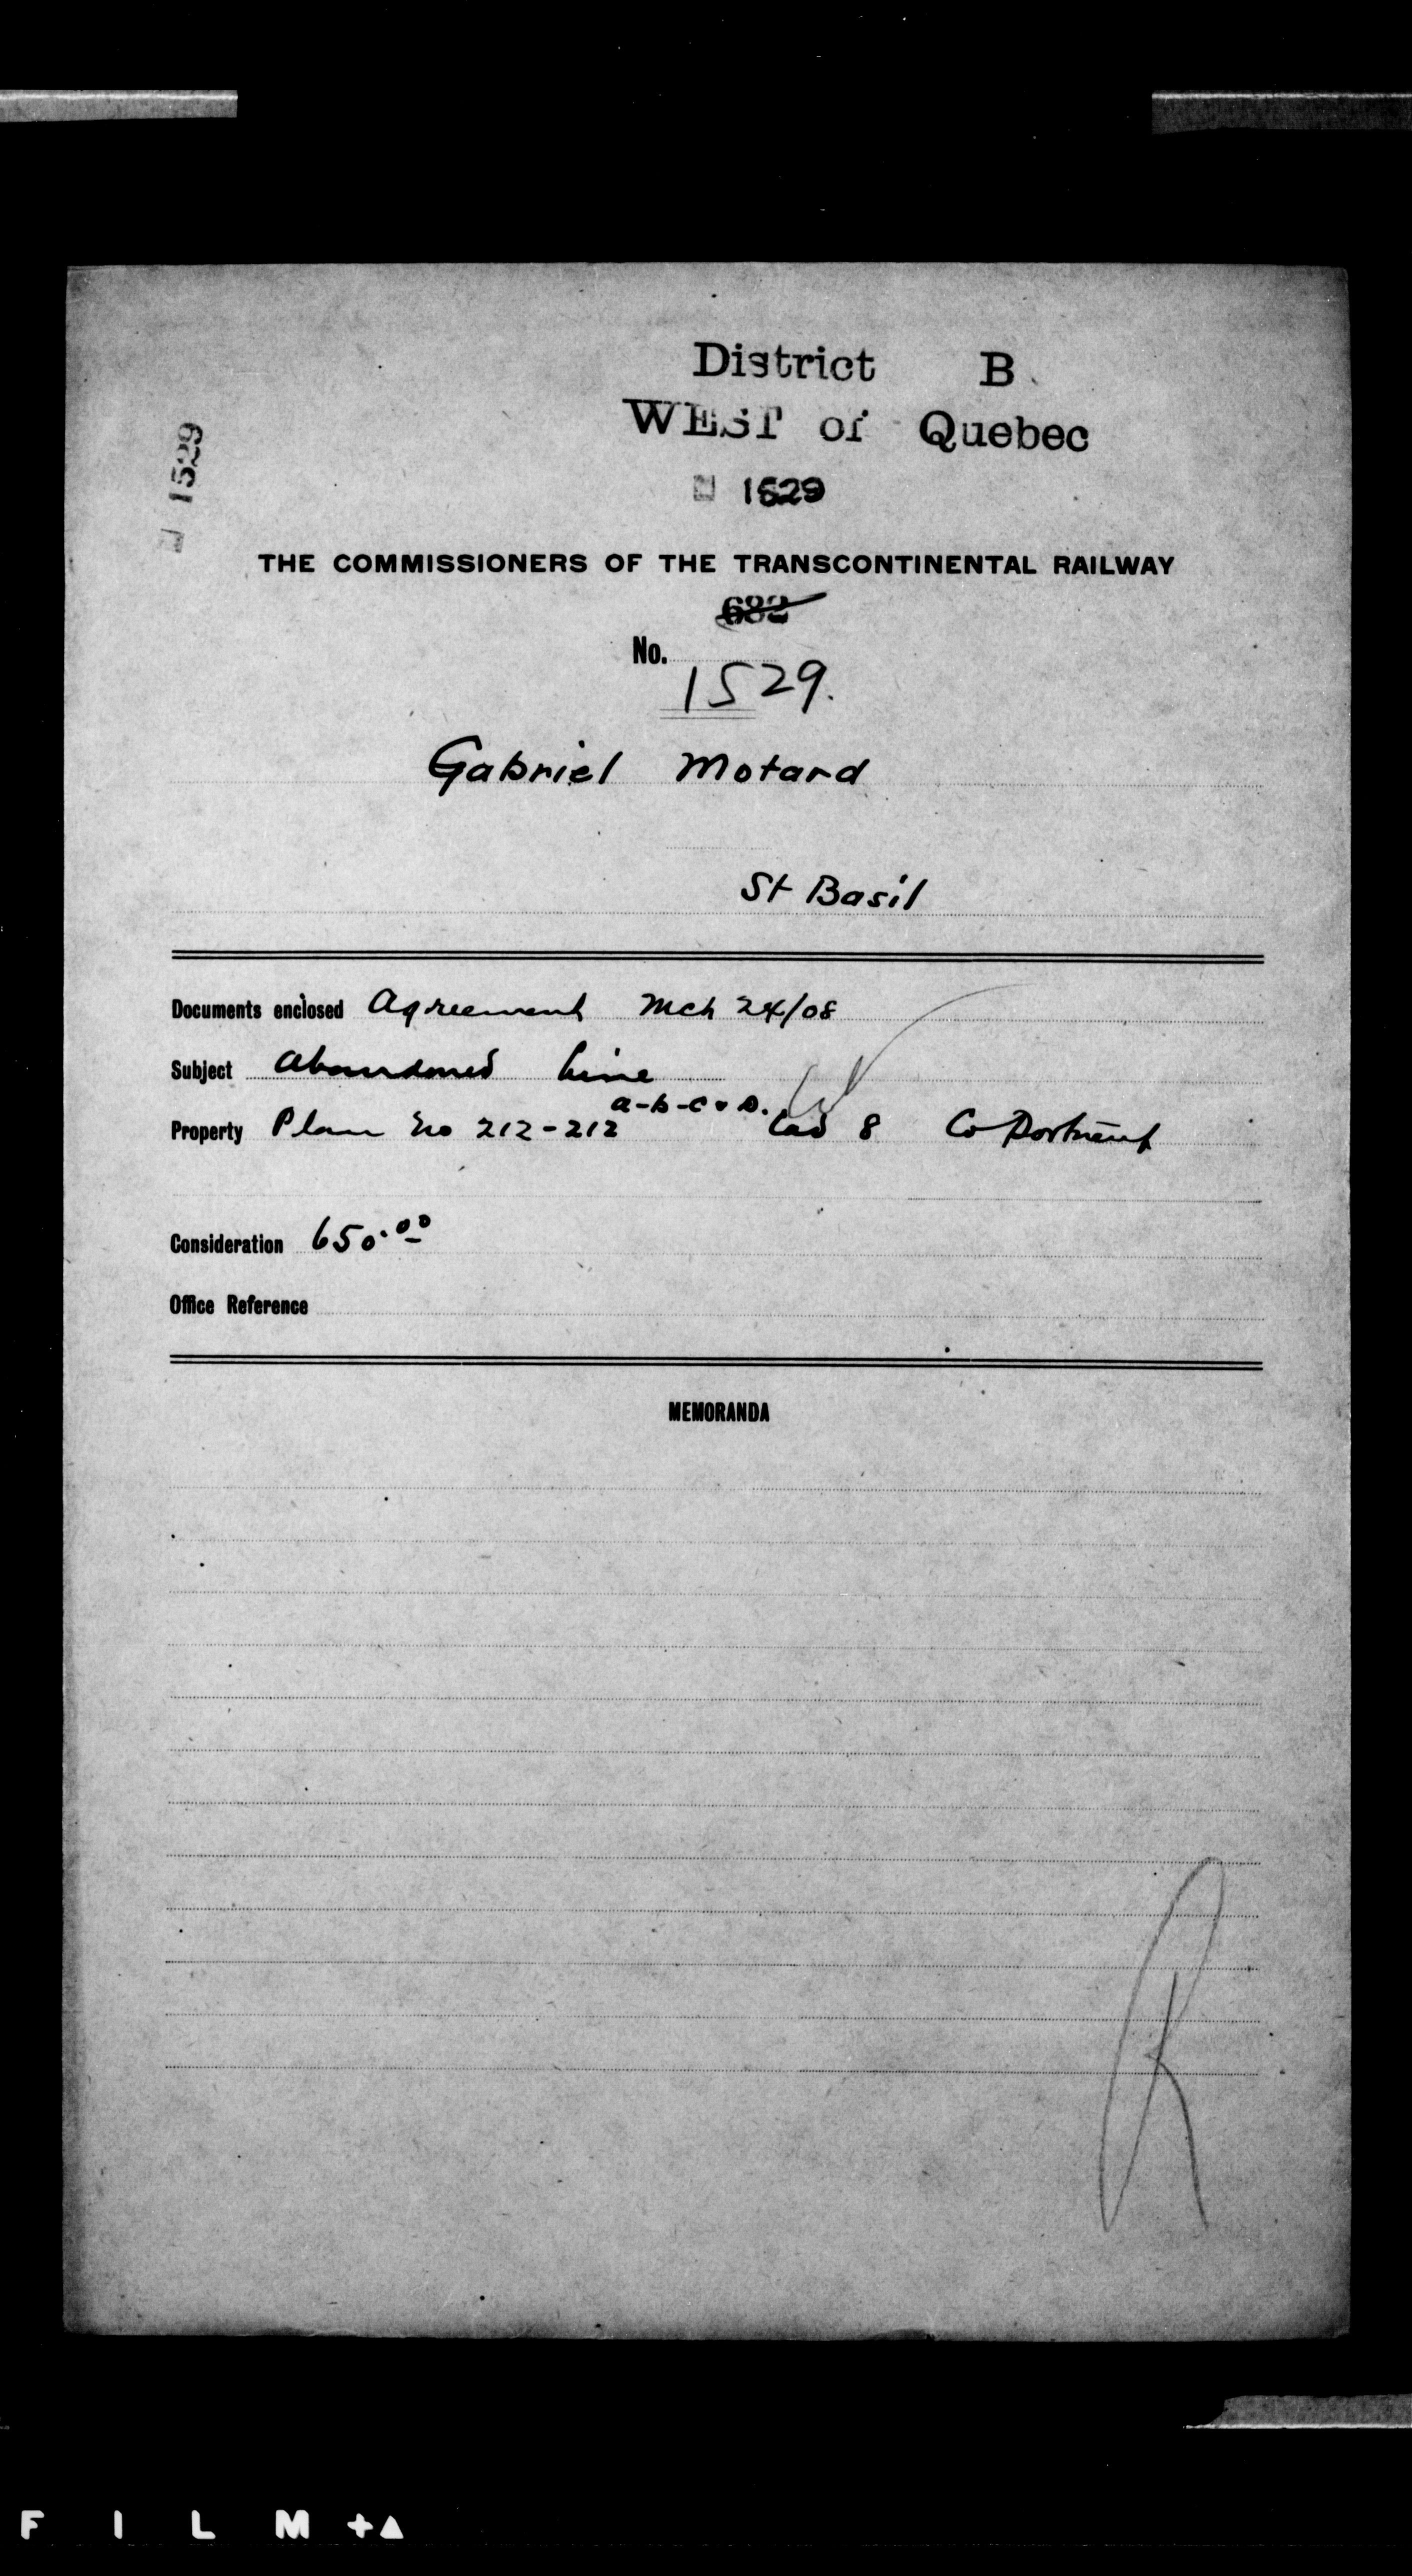 District B
WEST of Quebec
1529
1529
THE COMMISSIONERS OF THE TRANSCONTINENTAL RAILWAY
682
No.
1529.
Gabriel Motard
St Basil
Documents enclosed Agreement Mch 24/08
Subject Abandoned Line
a-b-c & D.
Property Plan No 212-212 Cad 8 Co Portneuf
Consideration 650.00
Office Reference
MEMORANDA
FILM